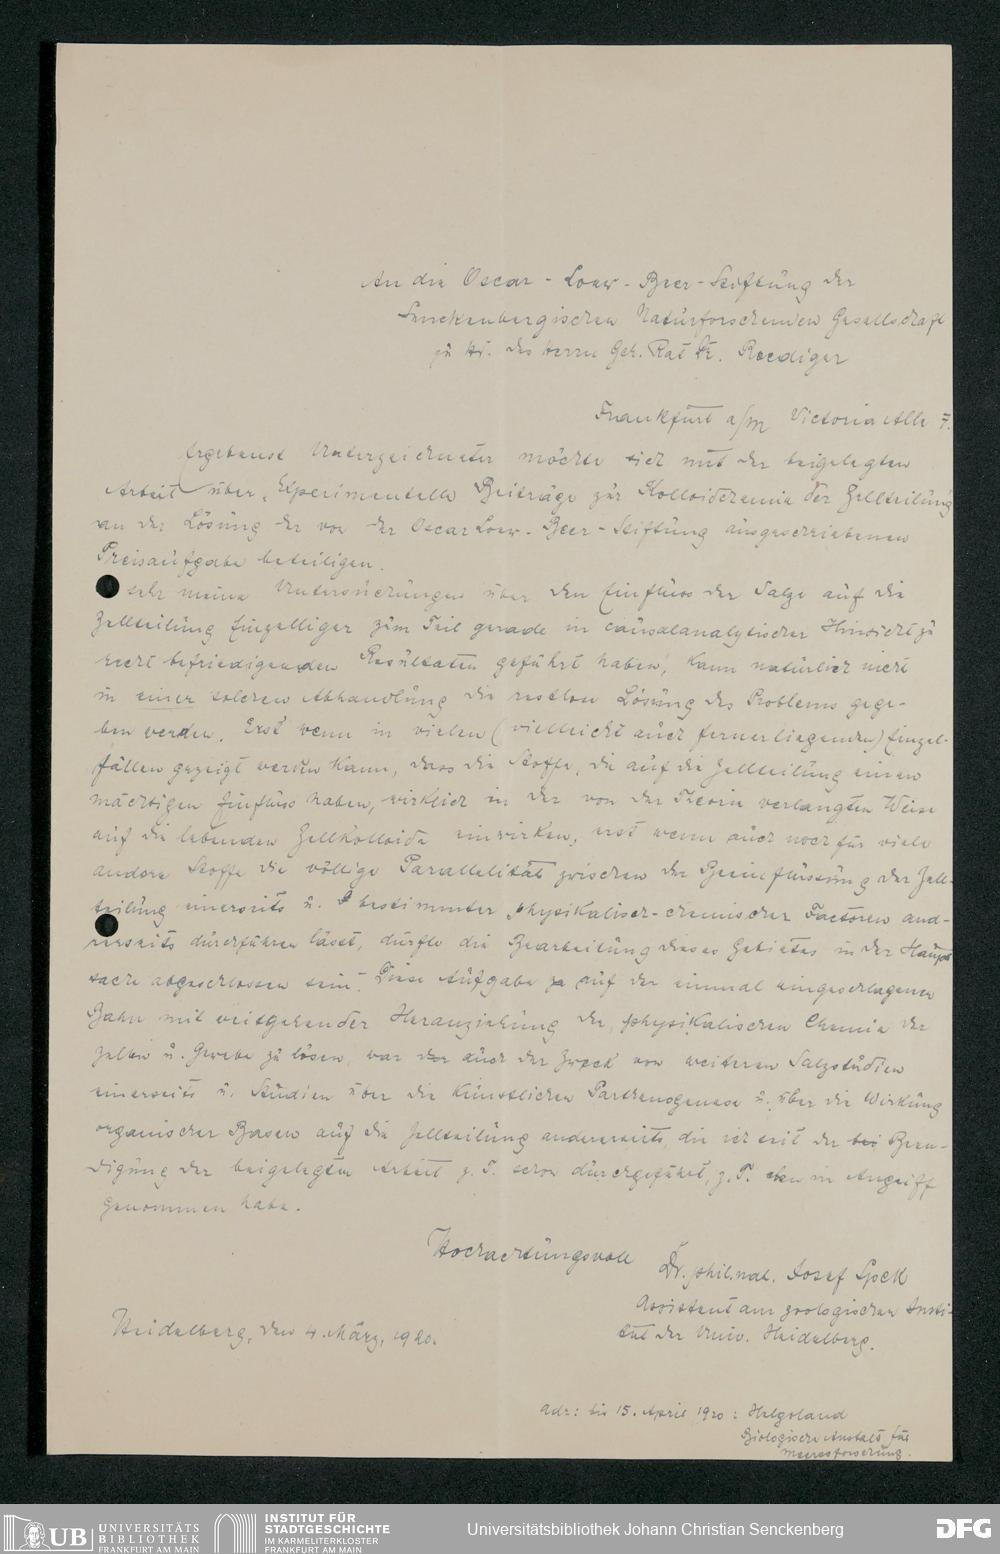 An die Oscar-Loew-Beer-Stiftung der
Senckenbergischen Naturforschenden Gesellschaft
zu Hd. des Herrn Geh. Rat Dr. Roediger
Frankfurt a/M Victoria Alle 7.
Ergebenst Unterzeichneter möchte sich mit der beigelegten
Arbeit über „Experimentelle Beiträge zur Kolloidchemie der Zellteilung
an der Lösung der von der Oscar Loew-Beer-Stiftung ausgeschriebenen
Preisaufgabe beteiligen.
sehr meine Untersuchungen über den Einfluss der Salze auf die
Zellteilung Einzelliger zum Teil gerade in causalanalytischer Hinsicht zu
recht befriedigenden Resultaten geführt haben, kann natürlich nicht
in einer solchen Abhandlung die restlose Lösung des Problems gege-
ben werden. Erst wenn in vielen (vielleicht auch fernerliegenden) Einzel-
fällen gezeigt werden kann, dass die Stoffe, die auf die Zellteilung einen
mächtigen Einfluss haben, wirklich in der von der Theorie verlangten Weise
auf die lebenden Zellkolloide einwirken, erst wenn auch noch für viele
andere Stoffe die völlige Parallelität zwischen der Beeinflussung der Zell-
teilung einerseits u. bestimmter physikalisch-chemischer Factoren and-
rerseits durchführen lässt, dürfte die Bearbeitung dieses Gebietes in der Haupt
sache abgeschlossen sein. Diese Aufgabe auf der einmal eingeschlagenen
Bahn mit weitgehender Heranziehung der physikalischen Chemie der
Zellen u. Gewebe zu lösen, war auch der Zweck von weiteren Salzstudien
einerseits u. Studien über die künstlichen Parthenogenese u. über die Wirkung
organischer Basen auf die Zellteilung andererseits, die ich seit der Been-
digung der beigelegten Arbeit z. T. schon durchgeführt, z. T. eben in Angriff
genommen habe.
Hochachtungsvoll
Dr. phil. nat. Josef Speck
Assistent am zoologischen Insti-
tut der Univ. Heidelberg.
Heidelberg, den 4. März, 1920.
Adr: bis 15. April 1920: Helgoland
Biologische Anstalt für
Meeresforschung.
UB UNIVERSITÄTS
BIBLIOTHEK
FRANKFURT AM MAIN
INSTITUT FÜR
STADTGESCHICHTE
IM KARMELITERKLOSTER
FRANKFURT AM MAIN
Universitätsbibliothek Johann Christian Senckenberg
DFG